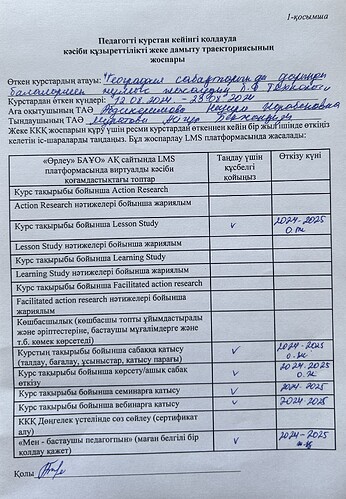 1-қосымша
Педагогті курстан кейінгі қолдауда
кәсіби құзыреттілікті жеке дамыту траекториясының
жоспары
Өткен курстардың атауы: "География сабақтарында дарынды
балалармен жұмыс
Курстардан өткен күндері: 12.08.2024 - 23.08.2024
Аға оқытушының ТАӘ
Тыңдаушының ТАӘ
Жеке ККҚ жоспарын құру үшін ресми курстардан өткеннен кейін бір жыл ішінде өткіңіз
келетін іс-шараларды таңдаңыз. Бұл жоспарлау LMS платформасында жасалады:
«Өрлеу» БАҰО» АҚ сайтында LMS платформасында виртуалды кәсіби қоғамдастықтағы топтар | Таңдау үшін құсбелгі қойыңыз | Өткізу күні
Курс тақырыбы бойынша Action Research
Action Research нәтижелері бойынша жариялым
Курс тақырыбы бойынша Lesson Study v 2024-2025
Lesson Study нәтижелері бойынша жариялым
Курс тақырыбы бойынша Learning Study
Learning Study нәтижелері бойынша жариялым
Курс тақырыбы бойынша Facilitated action research
Facilitated action research нәтижелері бойынша
жариялым
Көшбасшылық (көшбасшы топты ұйымдастырады
және әріптестеріне, бастаушы мұғалімдерге және
т.б. көмек көрсетеді)
Курстың тақырыбы бойынша сабаққа қатысу v 2024-2025
(талдау, бағалау, ұсыныстар, қатысу парағы)
Курс тақырыбы бойынша көрсету/ашық сабақ v 2024-2025
өткізу
Курс тақырыбы бойынша семинарға қатысу v 2024-2025
Курс тақырыбы бойынша вебинарға қатысу v 2024-2025
ККҚ Дөңгелек үстелінде сөз сөйлеу (сертификат
алу)
«Мен - бастаушы педагогпын» (маған белгілі бір v 2024-2025
қолдау қажет)
Қолы